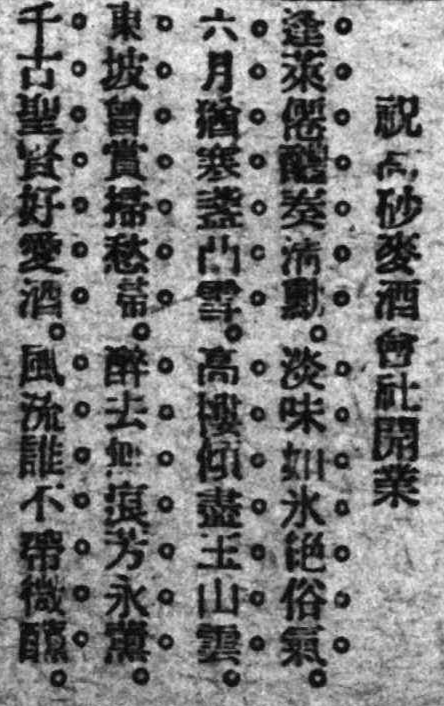 祝高砂麥酒會社開業
逢萊僊醴奏淸勳。淡味如氷絶俗氣。
六月猶寒盞凸雪。高樓傾盡玉山雲。
東坡曾賞掃愁箒。醉去無痕芳永薰。
千古聖賢好愛酒。風流誰不帶微醺。